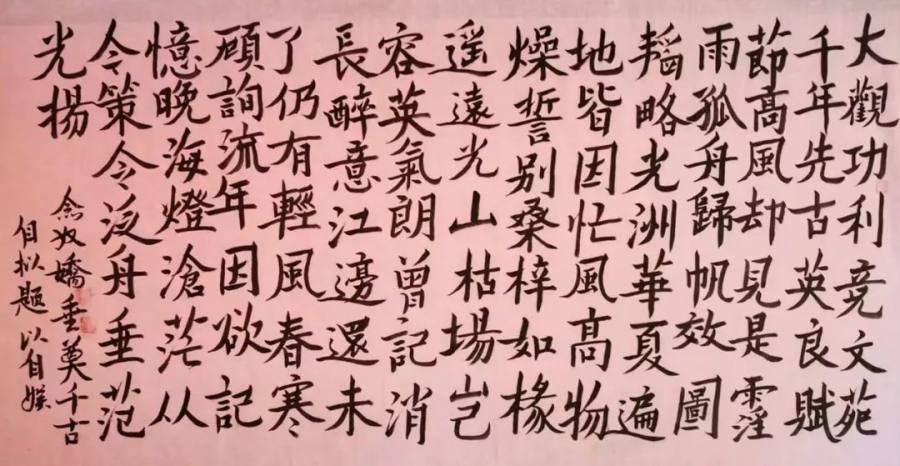 大觀功利竞文苑
千年先古英良賦
節高風却見是霪
雨孤舟歸帆效圖
韜略光洲華夏遍
地皆因忙風高物
燥誓别桑梓如椽
遥遠光山枯場岂
容英氣朗曾記消
長醉意江邊還未
了仍有輕風春寒
頋詢流年因欲記
憶晚海燈滄茫从
令策令泛舟垂范
光揚
念奴嬌垂奠千古
自拟题以自娱